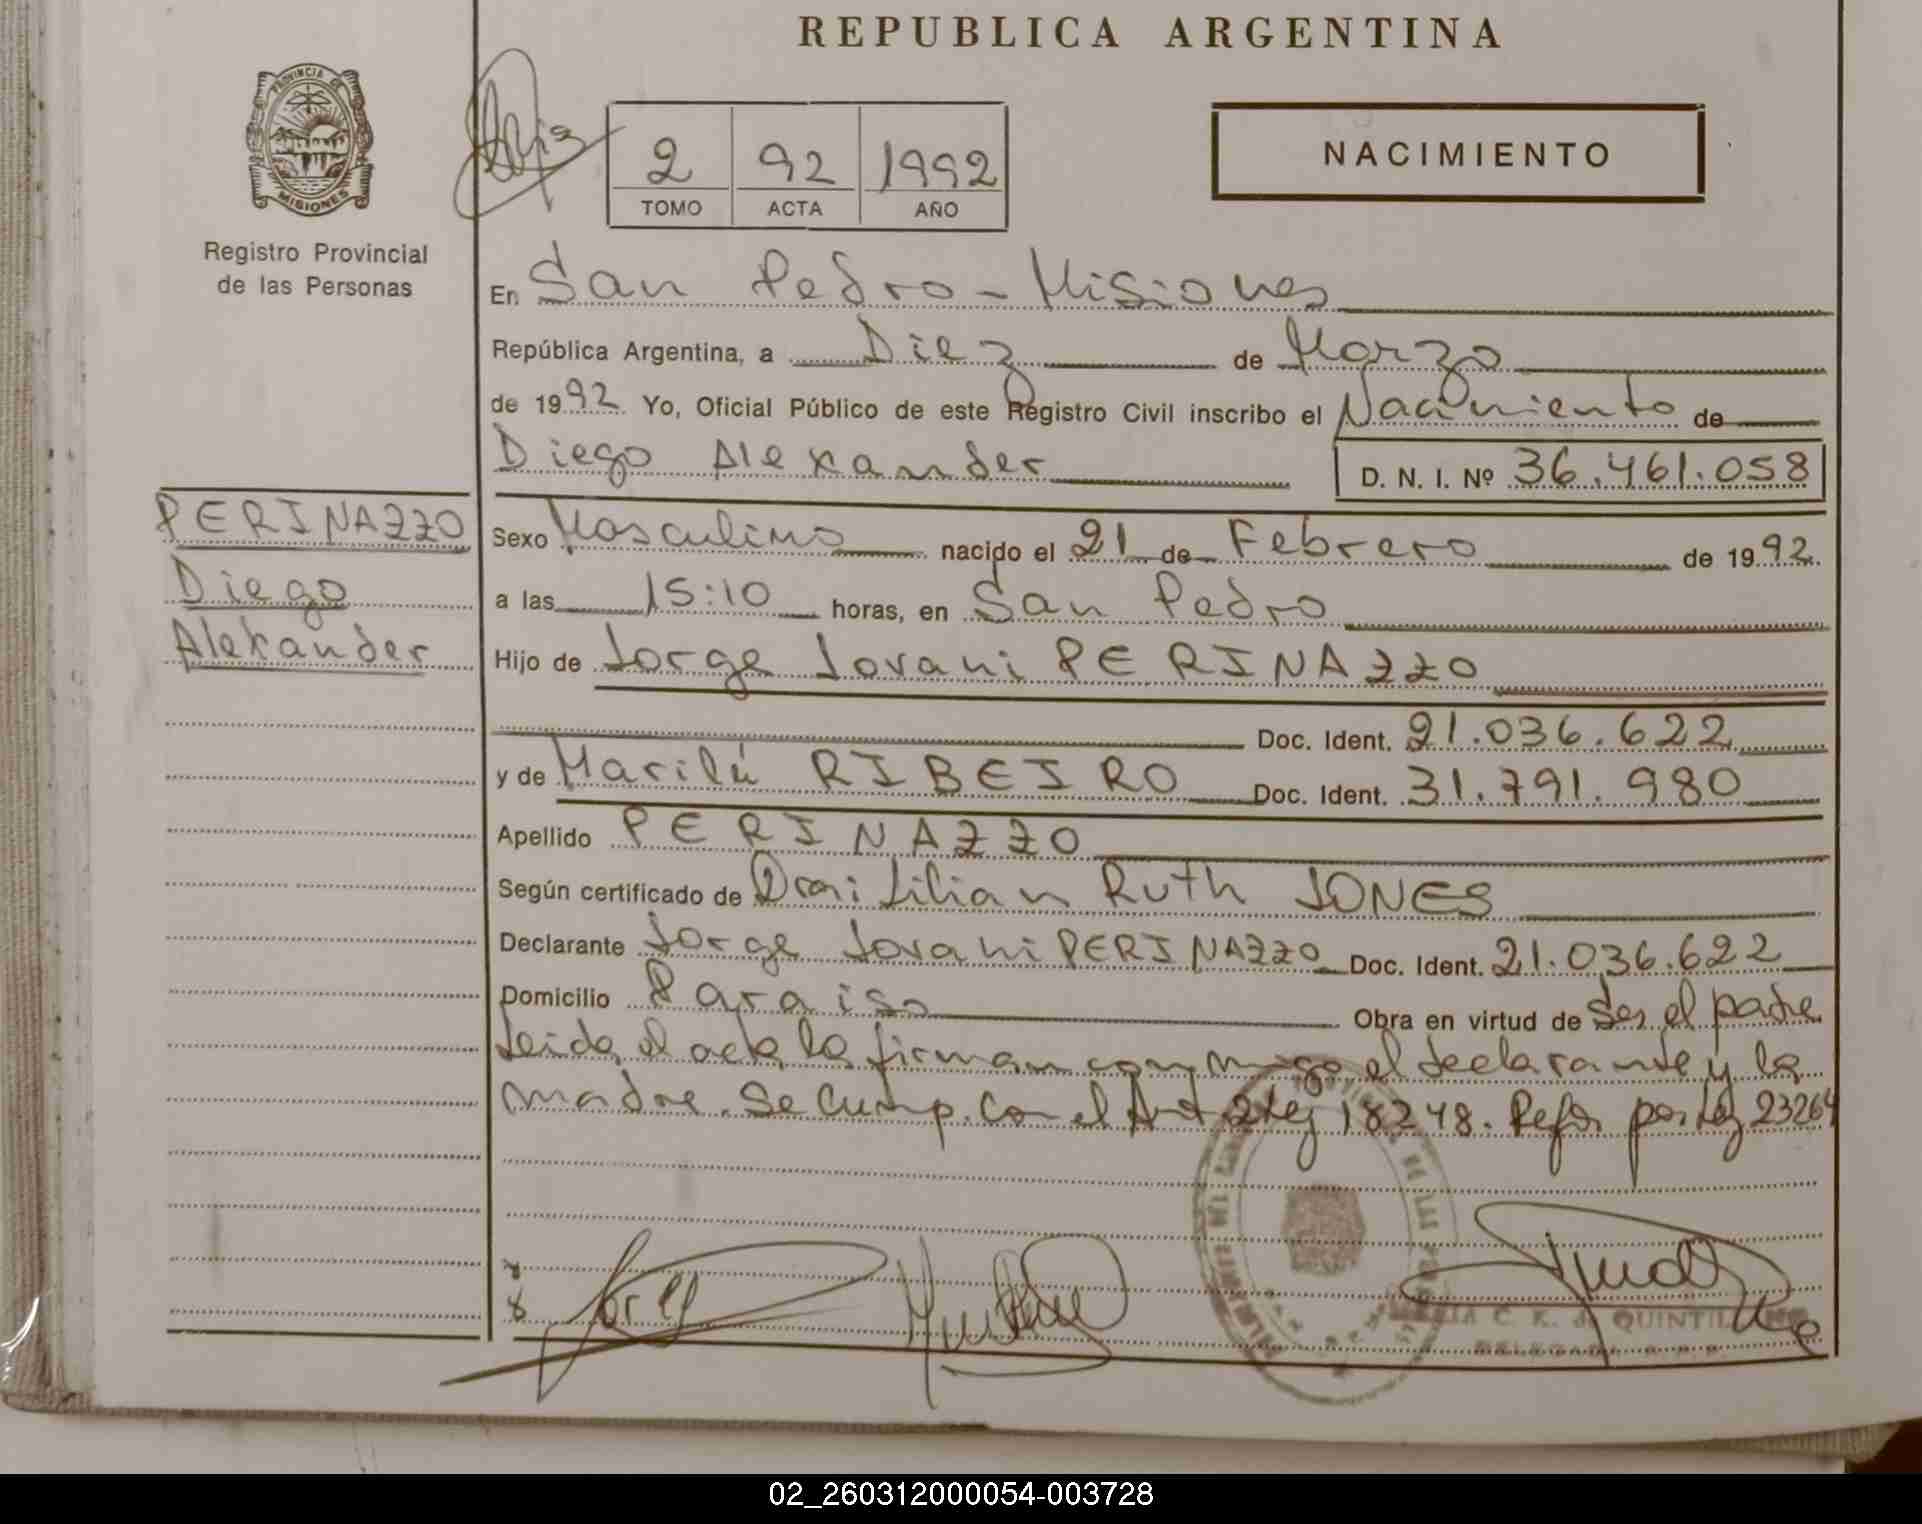 REPUBLICA ARGENTINA
PROVINCIA DE
MISIONES
Registro Provincial
de las Personas
2 92 1992
TOMO ACTA AÑO
NACIMIENTO
En San Pedro - Misiones
República Argentina, a Diez de Marzo
de 1992 Yo, Oficial Público de este Registro Civil inscribo el Nacimiento de
Diego Alexander D. N. I. Nº 36.461.058
PERINAZZO
Diego
Alexander
Sexo Masculino nacido el 21 de Febrero de 1992
a las 15:10 horas, en San Pedro
Hijo de Jorge Jovani PERINAZZO
Doc. Ident. 21.036.622
y de Marilú RIBEIRO Doc. Ident. 31.791.980
Apellido PERINAZZO
Según certificado de Dra: Lilian Ruth JONES
Declarante Jorge Jovani PERINAZZO Doc. Ident. 21.036.622
Domicilio Paraiso Obra en virtud de Ser el padre
Leida el acta la firman conmigo el declarante y la
madre. Se Cump. Con el Art 2 Ley 18248. Refor por Ley 23264
C. K. de QUINTIL
DELEGADA
02_260312000054-003728